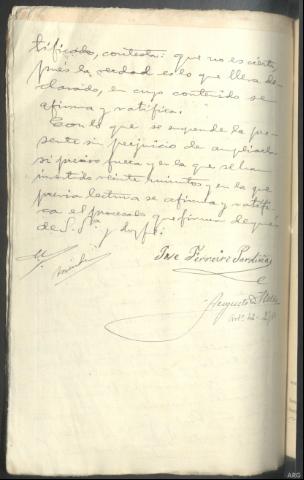 tificado, contesta: que no es cierto
pués la verdad es lo que lleva de-
clarado, en cuyo contenido se
afirma y ratifica.
Con lo que se suspende la pre-
sente sin perjuicio de ampliarla
si preciso fuera y en la que se han
invertido veinte minutos y en la que
previa lectura se afirma y ratifi-
ca el procesado que firma después
de S. Sª y doy fé:
Jose Ferreiro Pardiñas
Augusto
ARG